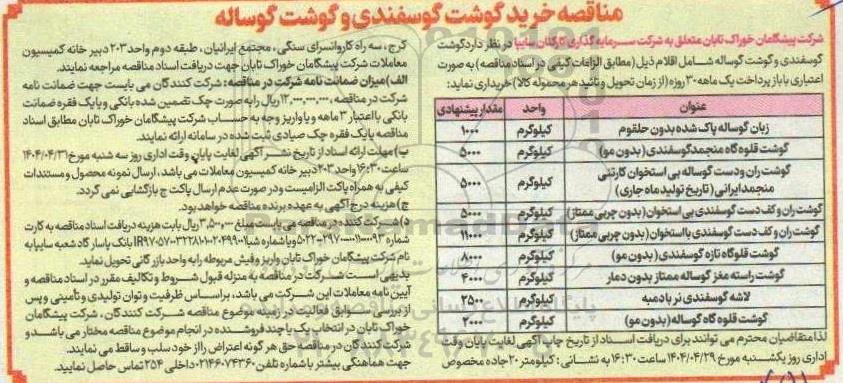 مناقصه خرید گوشت گوسفندی و گوشت گوساله
شرکت پیشگامان خوراک تابان متعلق به شرکت سرمایه گذاری کارکنان سایپا در نظر دارد گوشت
گوسفندی و گوشت گوساله شامل اقلام ذیل (مطابق الزامات کیفی در اسناد مناقصه) به صورت
اعتباری با باز پرداخت یک ماهه ۳۰ روزه (از زمان تحویل و تائید هر محموله کالا) خریداری نماید:
عنوان واحد مقدار پیشنهادی
زبان گوساله پاک شده بدون حلقوم کیلوگرم ۱۰۰۰
گوشت قلوه گاه منجمد گوسفندی (بدون مو) کیلوگرم ۵۰۰۰
گوشت ران و دست گوساله بی استخوان کارتنی
منجمد ایرانی (تاریخ تولید ماه جاری) کیلوگرم ۵۰۰۰
گوشت ران و کف دست گوسفندی بی استخوان (بدون چربی ممتاز) کیلوگرم ۵۰۰۰
گوشت ران و کف دست گوسفندی با استخوان (بدون چربی ممتاز) کیلوگرم ۱۱۰۰۰
گوشت قلوگاه تازه گوسفندی (بدون مو) کیلوگرم ۸۰۰۰
گوشت راسته مغز گوساله ممتاز بدون دمار کیلوگرم ۴۰۰۰
لاشه گوسفندی نر با دمبه کیلوگرم ۲۵۰۰
گوشت قلوه گاه گوساله (بدون مو) کیلوگرم ۲۰۰۰
لذا متقاضیان محترم می توانند برای دریافت اسناد از تاریخ چاپ آگهی لغایت پایان وقت
اداری روز یکشنبه مورخ ۱۴۰۴/۰۴/۲۹ ساعت ۱۶:۳۰ به نشانی: کیلومتر ۲۰ جاده مخصوص
کرج، سه راه کاروانسرای سنگی، مجتمع ایرانیان، طبقه دوم واحد ۲۰۳ دبیر خانه کمیسیون
معاملات شرکت پیشگامان خوراک تابان جهت دریافت اسناد مناقصه مراجعه نمایند.
الف) میزان ضمانت نامه شرکت در مناقصه: شرکت کنندگان می بایست جهت ضمانت نامه
شرکت در مناقصه، ۱۲,۰۰۰,۰۰۰,۰۰۰ ریال را به صورت چک تضمین شده بانکی و یا یک فقره ضمانت
بانکی با اعتبار ۳ ماهه و یا واریز وجه به حساب شرکت پیشگامان خوراک تابان مطابق اسناد
مناقصه یا یک فقره چک صیادی ثبت شده در سامانه ارائه نمایند.
ب) مهلت ارائه اسناد از تاریخ نشر آگهی لغایت پایان وقت اداری روز سه شنبه مورخ ۱۴۰۴/۰۴/۳۱
ساعت ۱۶:۳۰ واحد ۲۰۳ دبیر خانه کمیسیون معاملات می باشد، ارسال نمونه محصول و مستندات
کیفی به همراه پاکت الزامیست و در صورت عدم ارسال پاکت ج بازگشایی نمی گردد.
ج) هزینه درج آگهی به عهده برنده مناقصه خواهد بود.
د) شرکت کننده در مناقصه می بایست مبلغ ۳,۵۰۰,۰۰۰ ریال بابت هزینه دریافت اسناد مناقصه به کارت
شماره و یا شماره شبا بانک پاسارگاد شعبه سایپا به
نام شرکت پیشگامان خوراک تابان واریز و فیش مربوطه را به واحد بازرگانی تحویل نماید.
بدیهی است شرکت در مناقصه به منزله قبول شروط و تکالیف مقرر در اسناد مناقصه و
آیین نامه معاملات این شرکت می باشد، بر اساس ظرفیت و توان تولیدی و تأمینی و پس
از بررسی سوابق فعالیت در زمینه موضوع مناقصه شرکت کنندگان، شرکت پیشگامان
خوراک تابان در انتخاب یک یا چند فروشنده در انجام موضوع مناقصه مختار می باشد و
شرکت کنندگان در مناقصه حق هر گونه اعتراض را از خود سلب و ساقط می نمایند.
جهت هماهنگی بیشتر با شماره تلفن ۰۲۱۴۶۰۷۴۳۶۰ داخلی ۲۵۴ تماس حاصل نمایید.